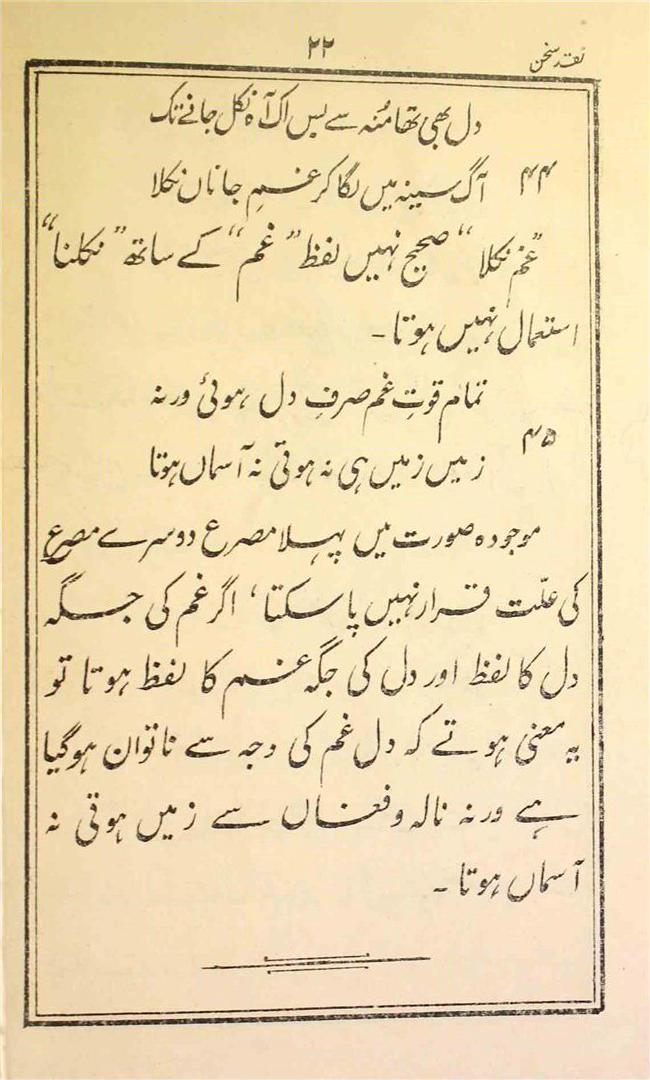 نقد سخن
۲۲
دل بھی تھا منہ سے بس اک آہ نکل جانے تک
۴۴ آگ سینہ میں لگا کر غمِ جاناں نکلا
”غم نکلا“ صحیح نہیں لفظ ”غم“ کے ساتھ ”نکلنا“
استعمال نہیں ہوتا۔
تمام قوتِ غم صرفِ دل ہوئی ورنہ
۴۵
زمیں زمیں ہی نہ ہوتی نہ آسماں ہوتا
موجودہ صورت میں پہلا مصرع دوسرے مصرع
کی علّت قرار نہیں پا سکتا، اگر غم کی جگہ
دل کا لفظ اور دل کی جگہ غم کا لفظ ہوتا تو
یہ معنی ہوتے کہ دل غم کی وجہ سے ناتوان ہوگیا
ہے ورنہ نالہ وفغاں سے زمیں ہوتی نہ
آسماں ہوتا۔